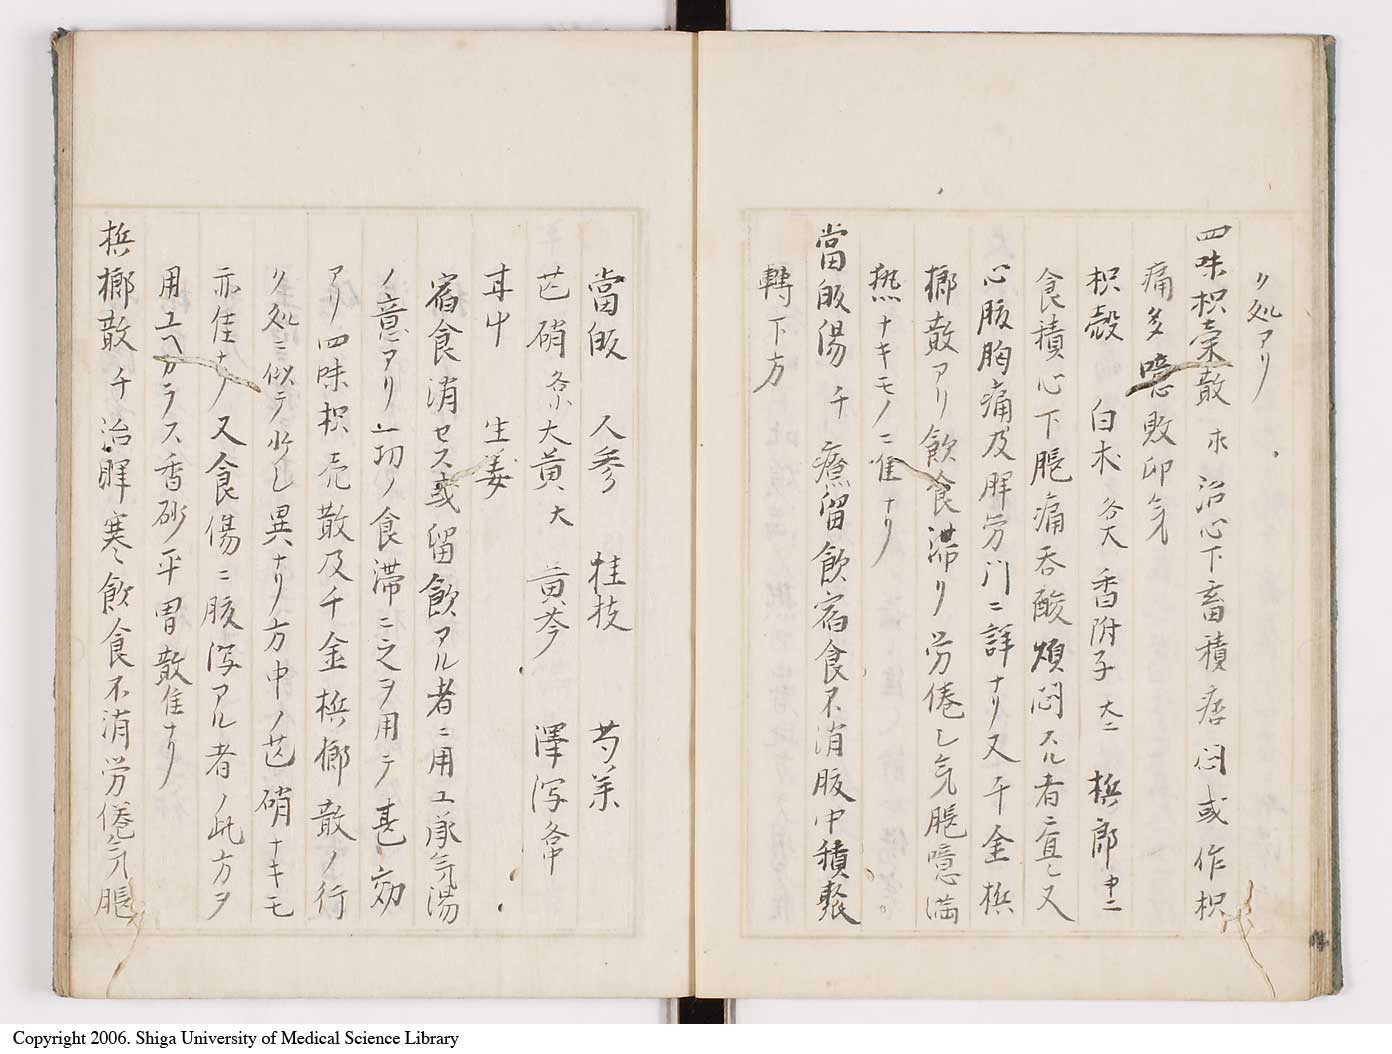 リ処アリ
四味枳実散 本 治心下畜積痞悶或作枳
痛多噫敗卵気
枳殻 白朮 各大 香附子 大二 梹郎 中二
食積心下脹痛吞酸煩悶スル者ニ宜シ又
心腹胸痛及脾労門ニ詳ナリ又千金梹
榔散アリ飲食滞リ労倦シ気脹噫満
熱ナキモノニ隹ナリ
當皈湯 千 療留飲宿食不消腹中積聚
轉下方
當皈 人参 桂枝 芍薬
芒硝 各小 大黄 大 黄芩 澤泻 各中
甘中 生姜
宿食消セス或留飲アル者ニ用ユ承気湯
ノ意アリ一切ノ食滞ニ之ヲ用テ甚効
アリ四味枳売散及千金梹榔散ノ行
ク処ニ似テ少シ異ナリ方中ノ芒硝ナキモ
亦佳ナリ又食傷ニ腹泻アル者ノ此方ヲ
用ユヘカラス香砂平胃散隹ナリ
梹榔散 千 治脾寒飲食不消労倦気脹
Copyright 2006. Shiga University of Medical Science Library